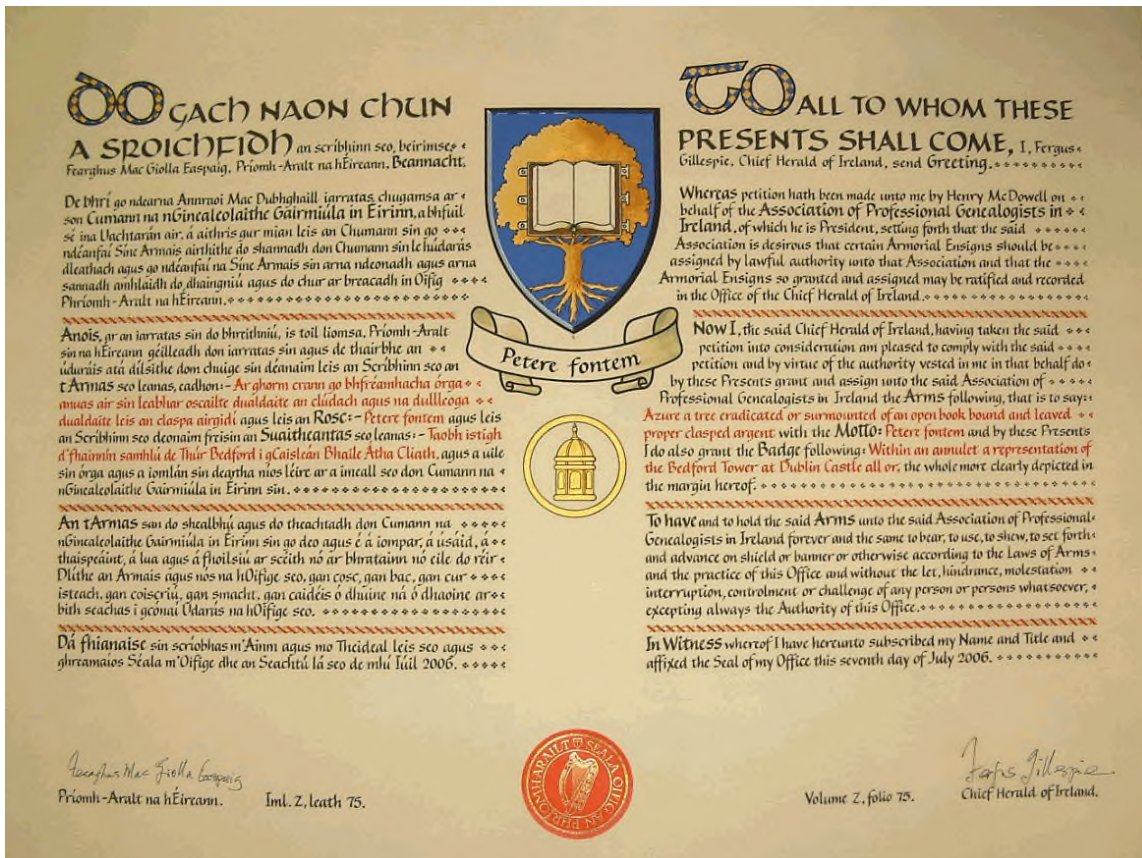 DO GACH NAON CHUN
A SROICHFIDH an scríbhinn seo, beirimse,
Fearghus Mac Giolla Easpaig, Príomh-Aralt na hÉireann. Beannacht.
De bhrí go ndearna Annraoi Mac Dubhghaill iarratas chugamsa ar
son Cumann na nGinealeolaithe Gairmiúla in Éirinn, a bhfuil
sé ina Uachtarán air, á aithris gur mian leis an Chumann sin go
ndéanfaí Sine Armais airithe do shannadh don Chumann sin le húdarás
dleathach agus go ndéanfaí na Sine Armais sin arna ndeonadh agus arna
sannadh amhlaidh do dhaingniú agus do chur ar breacadh in Oifig
Phríomh-Aralt na hÉireann.
Anois, ar an iarratas sin do bhreithniú, is toil liomsa, Príomh-Aralt
sin na hÉireann géilleadh don iarratas sin agus de thairbhe an
údaráis atá dílsithe dom chuige sin déanaim leis an Scríbhinn seo an
tArmas seo leanas, eadhon:- Ar ghorm crann go bhfréamhacha órga
anuas air sin leabhar oscailte dualdaite an clúdach agus na duilleoga
dualdaite leis an claspa airgidí agus leis an Rosc:- Petere fontem agus leis
an Scríbhinn seo deonaim freisin an Suaitheantas seo leanas:- Taobh istigh
d'fhainnín samhlú de Thúr Bedford i gCaisleán Bhaile Átha Cliath, agus a uile
sin órga agus a iomlán sin deartha níos léire ar a imeall seo don Cumann na
nGinealeolaithe Gairmiúla in Éirinn sin.
An tArmas san do shealbhú agus do theachtadh don Cumann na
nGinealeolaithe Gairmiúla in Éirinn sin go deo agus é á iompar, á úsáid, á
thaispeáint, á lua agus á fhoilsiú ar sceith nó ar bhratainn nó eile do réir
Dlíthe an Armais agus nós na hOifige seo, gan cosc, gan bac, gan cur
isteach, gan coiscriú, gan smacht, gan caidéis ó dhuine ná ó dhaoine ar
bith seachas i gcónaí Údarás na hOifige seo.
Dá fhianaise sin scríobhas m'Ainm agus mo Theideal leis seo agus
ghreamaíos Séala m'Oifige dhe an Seachtú lá seo de mhí Iúil 2006.
Fearghus Mac Giolla Easpaig
Príomh-Aralt na hÉireann. Iml. Z, leath 75.
Petere fontem
SÉALA OIFIG AN PHRÍOMHARAILT
TO ALL TO WHOM THESE
PRESENTS SHALL COME, I, Fergus
Gillespie, Chief Herald of Ireland, send Greeting.
Whereas petition hath been made unto me by Henry McDowell on
behalf of the Association of Professional Genealogists in
Ireland, of which he is President, setting forth that the said
Association is desirous that certain Armorial Ensigns should be
assigned by lawful authority unto that Association and that the
Armorial Ensigns so granted and assigned may be ratified and recorded
in the Office of the Chief Herald of Ireland.
Now I, the said Chief Herald of Ireland, having taken the said
petition into consideration am pleased to comply with the said
petition and by virtue of the authority vested in me in that behalf do
by these Presents grant and assign unto the said Association of
Professional Genealogists in Ireland the Arms following, that is to say:
Azure a tree eradicated or surmounted of an open book bound and leaved
proper clasped argent with the Motto: Petere fontem and by these Presents
I do also grant the Badge following: Within an annulet a representation of
the Bedford Tower at Dublin Castle all or, the whole more clearly depicted in
the margin hereof.
To have and to hold the said Arms unto the said Association of Professional
Genealogists in Ireland forever and the same to bear, to use, to shew, to set forth
and advance on shield or banner or otherwise according to the Laws of Arms
and the practice of this Office and without the let, hindrance, molestation
interruption, controlment or challenge of any person or persons whatsoever,
excepting always the Authority of this Office.
In Witness whereof I have hereunto subscribed my Name and Title and
affixed the Seal of my Office this seventh day of July 2006.
Fergus Gillespie
Volume Z, folio 75. Chief Herald of Ireland.